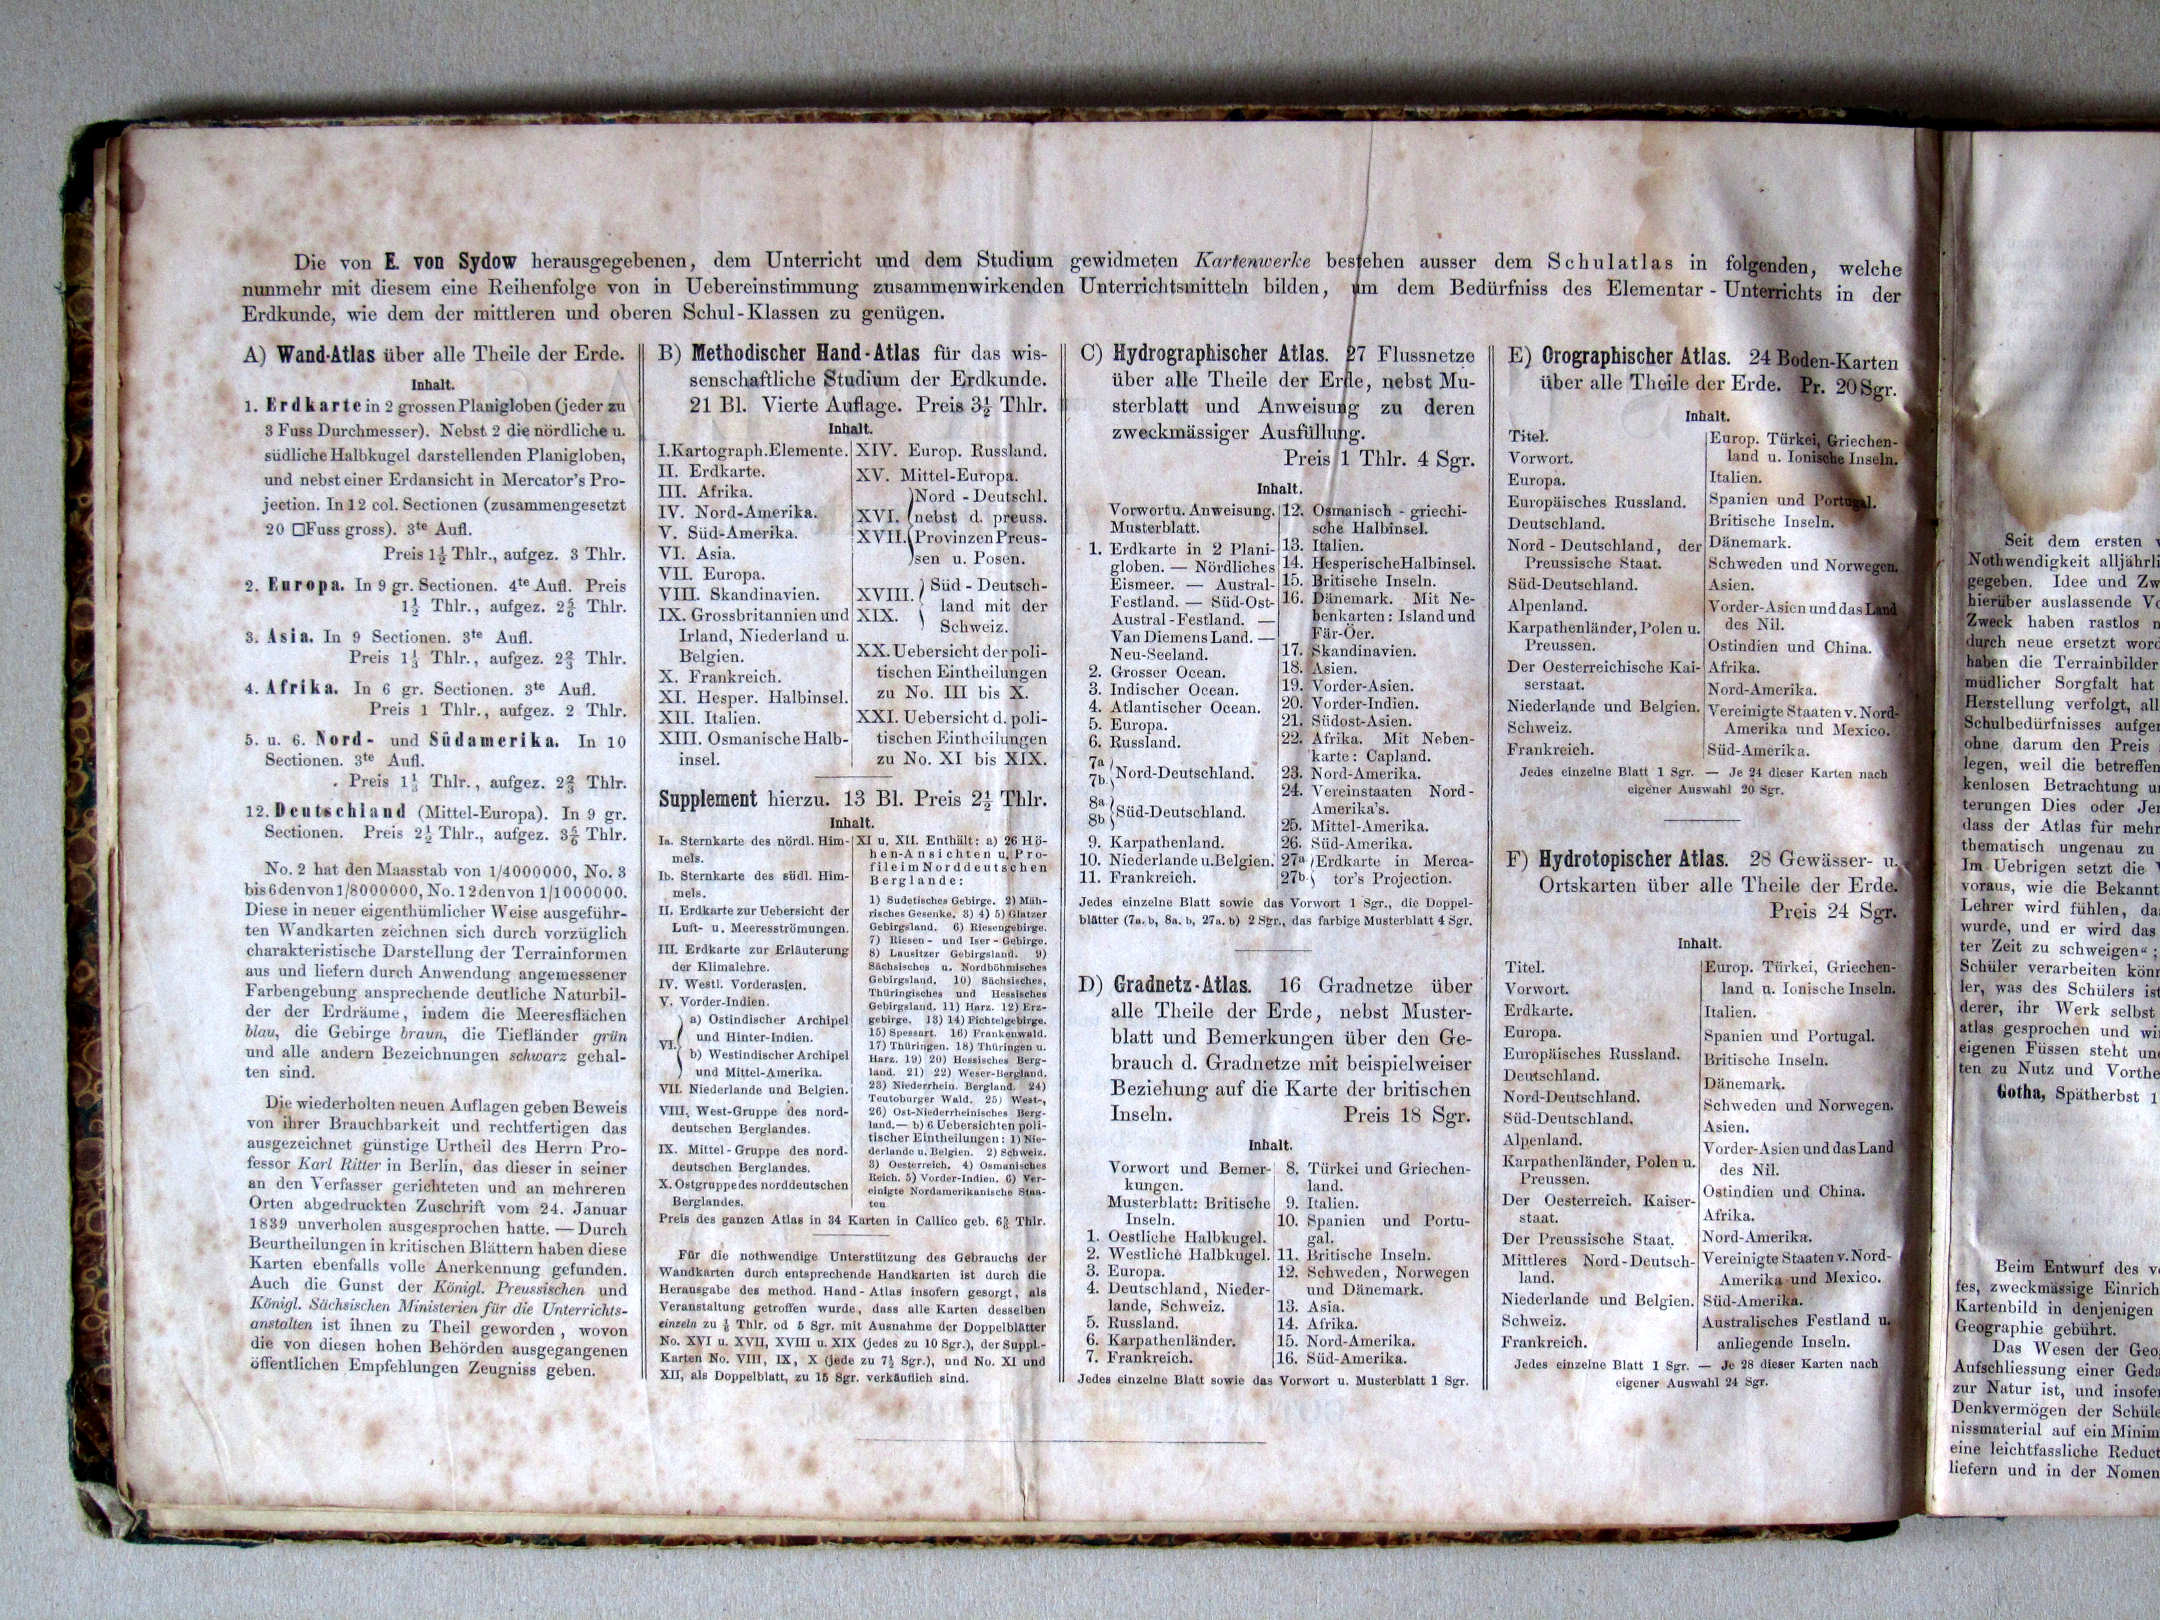 Die von E. von Sydow herausgegebenen, dem Unterricht und dem Studium gewidmeten Kartenwerke bestehen ausser dem Schulatlas in folgenden, welche
nunmehr mit diesem eine Reihenfolge von in Uebereinstimmung zusammenwirkenden Unterrichtsmitteln bilden, um dem Bedürfniss des Elementar-Unterrichts in der
Erdkunde, wie dem der mittleren und oberen Schul-Klassen zu genügen.
A) Wand-Atlas über alle Theile der Erde.
Inhalt.
1. Erdkarte in 2 grossen Planigloben (jeder zu
3 Fuss Durchmesser). Nebst 2 die nördliche u.
südliche Halbkugel darstellenden Planigloben,
und nebst einer Erdansicht in Mercator's Pro-
jection. In 12 col. Sectionen (zusammengesetzt
20 □Fuss gross). 3te Aufl.
Preis 1½ Thlr., aufgez. 3 Thlr.
2. Europa. In 9 gr. Sectionen. 4te Aufl. Preis
1½ Thlr., aufgez. 2⅚ Thlr.
3. Asia. In 9 Sectionen. 3te Aufl.
Preis 1⅓ Thlr., aufgez. 2⅔ Thlr.
4. Afrika. In 6 gr. Sectionen. 3te Aufl.
Preis 1 Thlr., aufgez. 2 Thlr.
5. u. 6. Nord- und Südamerika. In 10
Sectionen. 3te Aufl.
Preis 1⅓ Thlr., aufgez. 2⅔ Thlr.
12. Deutschland (Mittel-Europa). In 9 gr.
Sectionen. Preis 2½ Thlr., aufgez. 3⅚ Thlr.
No. 2 hat den Maasstab von 1/4000000, No. 3
bis 6 den von 1/8000000, No. 12 den von 1/1000000.
Diese in neuer eigenthümlicher Weise ausgeführ-
ten Wandkarten zeichnen sich durch vorzüglich
charakteristische Darstellung der Terrainformen
aus und liefern durch Anwendung angemessener
Farbengebung ansprechende deutliche Naturbil-
der der Erdräume, indem die Meeresflächen
blau, die Gebirge braun, die Tiefländer grün
und alle andern Bezeichnungen schwarz gehal-
ten sind.
Die wiederholten neuen Auflagen geben Beweis
von ihrer Brauchbarkeit und rechtfertigen das
ausgezeichnet günstige Urtheil des Herrn Pro-
fessor Karl Ritter in Berlin, das dieser in seiner
an den Verfasser gerichteten und an mehreren
Orten abgedruckten Zuschrift vom 24. Januar
1839 unverholen ausgesprochen hatte. — Durch
Beurtheilungen in kritischen Blättern haben diese
Karten ebenfalls volle Anerkennung gefunden.
Auch die Gunst der Königl. Preussischen und
Königl. Sächsischen Ministerien für die Unterrichts-
anstalten ist ihnen zu Theil geworden, wovon
die von diesen hohen Behörden ausgegangenen
öffentlichen Empfehlungen Zeugniss geben.
B) Methodischer Hand-Atlas für das wis-
senschaftliche Studium der Erdkunde.
21 Bl. Vierte Auflage. Preis 3½ Thlr.
Inhalt.
I. Kartograph. Elemente.
II. Erdkarte.
III. Afrika.
IV. Nord-Amerika.
V. Süd-Amerika.
VI. Asia.
VII. Europa.
VIII. Skandinavien.
IX. Grossbritannien und
Irland, Niederland u.
Belgien.
X. Frankreich.
XI. Hesper. Halbinsel.
XII. Italien.
XIII. Osmanische Halb-
insel.
XIV. Europ. Russland.
XV. Mittel-Europa.
Nord-Deutschl.
XVI. nebst d. preuss.
XVII. Provinzen Preus-
sen u. Posen.
XVIII. Süd-Deutsch-
XIX. land mit der
Schweiz.
XX. Uebersicht der poli-
tischen Eintheilungen
zu No. III bis X.
XXI. Uebersicht d. poli-
tischen Eintheilungen
zu No. XI bis XIX.
Supplement hierzu. 13 Bl. Preis 2½ Thlr.
Inhalt.
Ia. Sternkarte des nördl. Him-
mels.
Ib. Sternkarte des südl. Him-
mels.
II. Erdkarte zur Uebersicht der
Luft- u. Meeresströmungen.
III. Erdkarte zur Erläuterung
der Klimalehre.
IV. Westl. Vorderasien.
V. Vorder-Indien.
VI. a) Ostindischer Archipel
und Hinter-Indien.
b) Westindischer Archipel
und Mittel-Amerika.
VII. Niederlande und Belgien.
VIII. West-Gruppe des nord-
deutschen Berglandes.
IX. Mittel-Gruppe des nord-
deutschen Berglandes.
X. Ostgruppe des norddeutschen
Berglandes.
XI u. XII. Enthält: a) 26 Hö-
hen-Ansichten u. Pro-
file im Norddeutschen
Berglande:
1) Sudetisches Gebirge. 2) Mäh-
risches Gesenke. 3) 4) 5) Glatzer
Gebirgsland. 6) Riesengebirge.
7) Riesen- und Iser-Gebirge.
8) Lausitzer Gebirgsland. 9)
Sächsisches u. Nordböhmisches
Gebirgsland. 10) Sächsisches,
Thüringisches und Hessisches
Gebirgsland. 11) Harz. 12) Erz-
gebirge. 13) 14) Fichtelgebirge.
15) Spessart. 16) Frankenwald.
17) Thüringen. 18) Thüringen u.
Harz. 19) 20) Hessisches Berg-
land. 21) 22) Weser-Bergland.
23) Niederrhein. Bergland. 24)
Teutoburger Wald. 25) West-,
26) Ost-Niederrheinisches Berg-
land. — b) 6 Uebersichten poli-
tischer Eintheilungen: 1) Nie-
derlande u. Belgien. 2) Schweiz.
3) Oesterreich. 4) Osmanisches
Reich. 5) Vorder-Indien. 6) Ver-
einigte Nordamerikanische Staa-
ten
Preis des ganzen Atlas in 34 Karten in Callico geb. Thlr.
Für die nothwendige Unterstützung des Gebrauchs der
Wandkarten durch entsprechende Handkarten ist durch die
Herausgabe des method. Hand-Atlas insofern gesorgt, als
Veranstaltung getroffen wurde, dass alle Karten desselben
einzeln zu ⅙ Thlr. od 5 Sgr. mit Ausnahme der Doppelblätter
No. XVI u. XVII, XVIII u. XIX (jedes zu 10 Sgr.), der Suppl.-
Karten No. VIII, IX, X (jede zu 7½ Sgr.), und No. XI und
XII, als Doppelblatt, zu 15 Sgr. verkäuflich sind.
C) Hydrographischer Atlas. 27 Flussnetze
über alle Theile der Erde, nebst Mu-
sterblatt und Anweisung zu deren
zweckmässiger Ausfüllung.
Preis 1 Thlr. 4 Sgr.
Inhalt.
Vorwort u. Anweisung.
Musterblatt.
1. Erdkarte in 2 Plani-
globen. — Nördliches
Eismeer. — Austral-
Festland. — Süd-Ost-
Austral-Festland. —
Van Diemens Land. —
Neu-Seeland.
2. Grosser Ocean.
3. Indischer Ocean.
4. Atlantischer Ocean.
5. Europa.
6. Russland.
7a
7b Nord-Deutschland.
8a
8b Süd-Deutschland.
9. Karpathenland.
10. Niederlande u. Belgien.
11. Frankreich.
12. Osmanisch-griechi-
sche Halbinsel.
13. Italien.
14. Hesperische Halbinsel.
15. Britische Inseln.
16. Dänemark. Mit Ne-
benkarten: Island und
Fär-Öer.
17. Skandinavien.
18. Asien.
19. Vorder-Asien.
20. Vorder-Indien.
21. Südost-Asien.
22. Afrika. Mit Neben-
karte: Capland.
23. Nord-Amerika.
24. Vereinstaaten Nord-
Amerika's.
25. Mittel-Amerika.
26. Süd-Amerika.
27a Erdkarte in Merca-
27b tor's Projection.
Jedes einzelne Blatt sowie das Vorwort 1 Sgr., die Doppel-
blätter (7a. b, 8a. b, 27a. b) 2 Sgr., das farbige Musterblatt 4 Sgr.
D) Gradnetz-Atlas. 16 Gradnetze über
alle Theile der Erde, nebst Muster-
blatt und Bemerkungen über den Ge-
brauch d. Gradnetze mit beispielweiser
Beziehung auf die Karte der britischen
Inseln. Preis 18 Sgr.
Inhalt.
Vorwort und Bemer-
kungen.
Musterblatt: Britische
Inseln.
1. Oestliche Halbkugel.
2. Westliche Halbkugel.
3. Europa.
4. Deutschland, Nieder-
lande, Schweiz.
5. Russland.
6. Karpathenländer.
7. Frankreich.
8. Türkei und Griechen-
land.
9. Italien.
10. Spanien und Portu-
gal.
11. Britische Inseln.
12. Schweden, Norwegen
und Dänemark.
13. Asia.
14. Afrika.
15. Nord-Amerika.
16. Süd-Amerika.
Jedes einzelne Blatt sowie das Vorwort u. Musterblatt 1 Sgr.
E) Orographischer Atlas. 24 Boden-Karten
über alle Theile der Erde. Pr. 20 Sgr.
Inhalt.
Titel.
Vorwort.
Europa.
Europäisches Russland.
Deutschland.
Nord-Deutschland, der
Preussische Staat.
Süd-Deutschland.
Alpenland.
Karpathenländer, Polen u.
Preussen.
Der Oesterreichische Kai-
serstaat.
Niederlande und Belgien.
Schweiz.
Frankreich.
Europ. Türkei, Griechen-
land u. Ionische Inseln.
Italien.
Spanien und Portugal.
Britische Inseln.
Dänemark.
Schweden und Norwegen.
Asien.
Vorder-Asien und das Land
des Nil.
Ostindien und China.
Afrika.
Nord-Amerika.
Vereinigte Staaten v. Nord-
Amerika und Mexico.
Süd-Amerika.
Jedes einzelne Blatt 1 Sgr. — Je 24 dieser Karten nach
eigener Auswahl 20 Sgr.
F) Hydrotopischer Atlas. 28 Gewässer- u.
Ortskarten über alle Theile der Erde.
Preis 24 Sgr.
Inhalt.
Titel.
Vorwort.
Erdkarte.
Europa.
Europäisches Russland.
Deutschland.
Nord-Deutschland.
Süd-Deutschland.
Alpenland.
Karpathenländer, Polen u.
Preussen.
Der Oesterreich. Kaiser-
staat.
Der Preussische Staat.
Mittleres Nord-Deutsch-
land.
Niederlande und Belgien.
Schweiz.
Frankreich.
Europ. Türkei, Griechen-
land u. Ionische Inseln.
Italien.
Spanien und Portugal.
Britische Inseln.
Dänemark.
Schweden und Norwegen.
Asien.
Vorder-Asien und das Land
des Nil.
Ostindien und China.
Afrika.
Nord-Amerika.
Vereinigte Staaten v. Nord-
Amerika und Mexico.
Süd-Amerika.
Australisches Festland u.
anliegende Inseln.
Jedes einzelne Blatt 1 Sgr. — Je 28 dieser Karten nach
eigener Auswahl 24 Sgr.
Seit dem ersten
Nothwendigkeit alljährli
gegeben. Idee und Zw
hierüber auslassende Vo
Zweck haben rastlos
durch neue ersetzt word
haben die Terrainbilder
müdlicher Sorgfalt hat
Herstellung verfolgt, all
Schulbedürfnisses aufge
ohne darum den Preis
legen, weil die betreffen
kenlosen Betrachtung u
terungen Dies oder Je
dass der Atlas für mehr
thematisch ungenau zu
Im Uebrigen setzt die
voraus, wie die Bekannt
Lehrer wird fühlen, da
wurde, und er wird das
ter Zeit zu schweigen“;
Schüler verarbeiten könn
ler, was des Schülers ist
derer, ihr Werk selbst
atlas gesprochen und wi
eigenen Füssen steht un
ten zu Nutz und Vorthe
Gotha, Spätherbst 1
Beim Entwurf des v
fes, zweckmässige Einrich
Kartenbild in denjenigen
Geographie gebührt.
Das Wesen der Geo
Aufschliessung einer Geda
zur Natur ist, und insofe
Denkvermögen der Schüle
nissmaterial auf ein Minim
eine leichtfassliche Reduct
liefern und in der Nomen